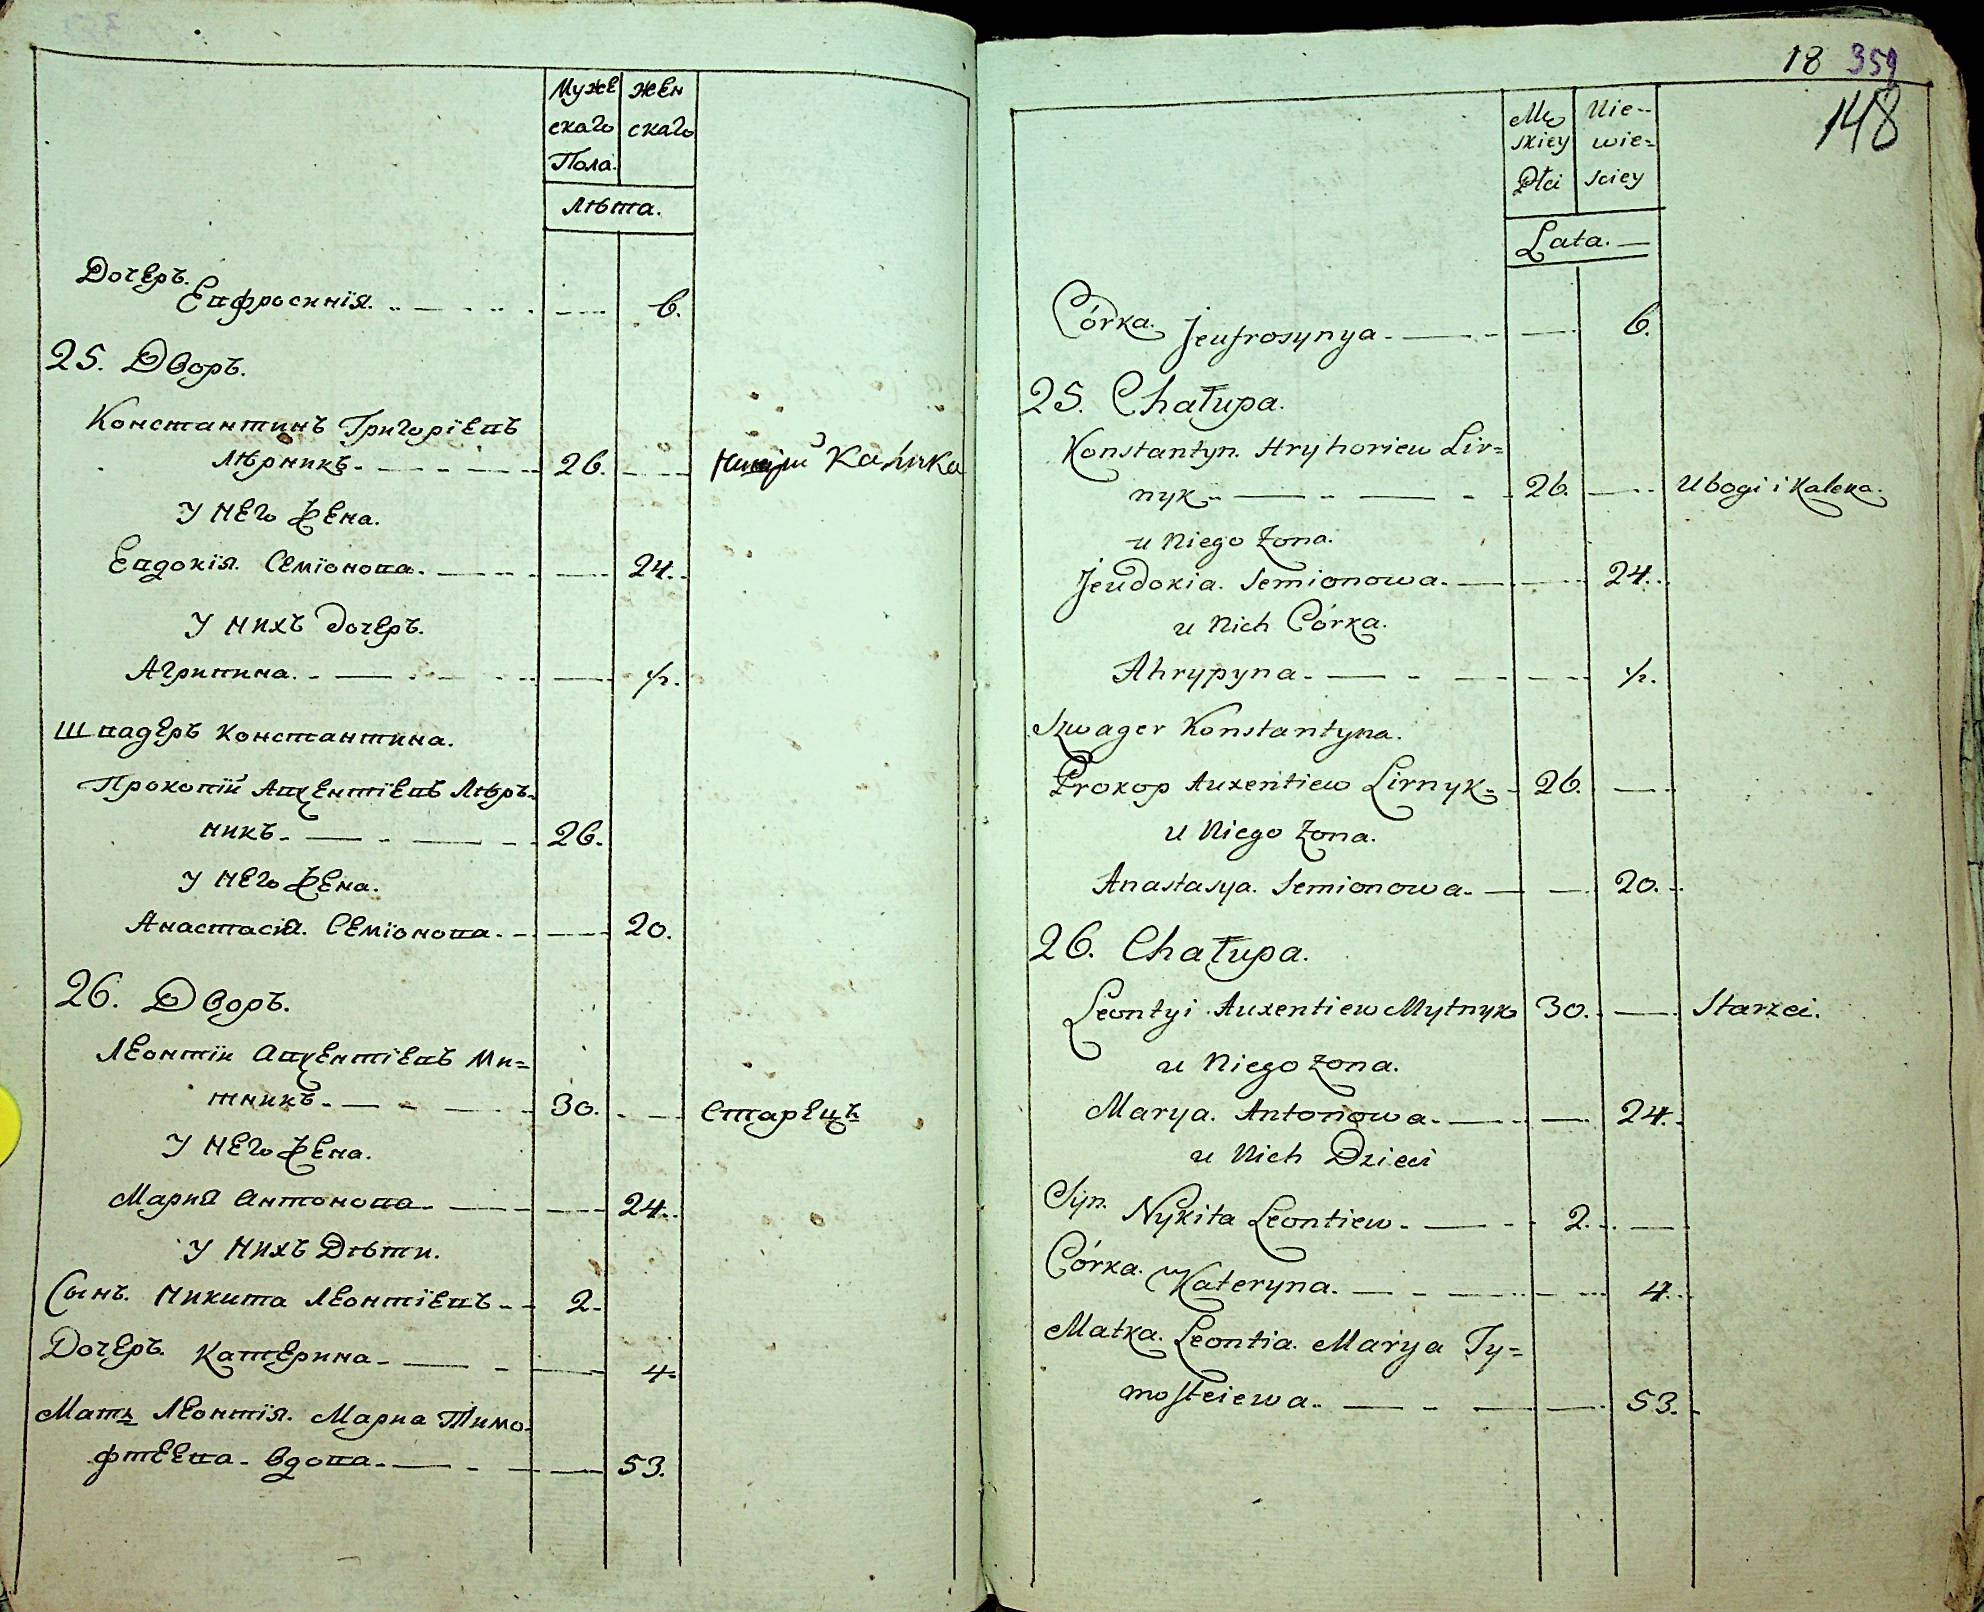 Муже
скаго
Пола.
Жен
скаго
Лѣта.
Дочеръ.
Евфросинїя. 6.
25. Дворъ.
Константинъ Григорїевъ
Лѣрникъ. 26. Калика
У него жена.
Евдокїя. Семїонова. 24.
У нихъ дочеръ.
Агрипина. 1/2.
Швагеръ Константина.
Прокопїй Авxентїевъ Лѣр-
никъ. 26.
У него жена.
Анастасїя. Семїонова. 20.
26. Дворъ.
Леонтїи Авxентїевъ Ми=
тникъ. 30. Старецъ
У него жена.
Мария Антонова 24.
У нихъ Дѣти.
Сынъ. Никита Леонтїевъ 2.
Дочеръ. Катерина 4.
Мать Леонтїя. Мариа Тимо-
фтеева вдова. 53.
18 359
148
Mę
skiey
Płci
Nie-
wie=
sciey
Lata.
Córka. Jeufrosynya 6.
25. Chałupa.
Konstantyn. Hryhoriew Lir=
nyk 26. Ubogi i Kaleka.
u Niego Zona.
Jeudokia. Semionowa. 24.
u Nich Córka.
Ahrypyna 1/2.
Szwager Konstantyna.
Prokop Auxentiew Lirnyk 26.
u Niego Zona.
Anastasya. Semionowa. 20.
26. Chałupa.
Leontyi Auxentiew Mytnyk 30. Starzei.
u Niego zona.
Marya. Antonowa. 24.
u Nich Dzieci
Syn. Nykita Leontiew 2.
Córka. Kateryna. 4.
Matka. Leontia. Marya Ty=
mofteiewa 53.